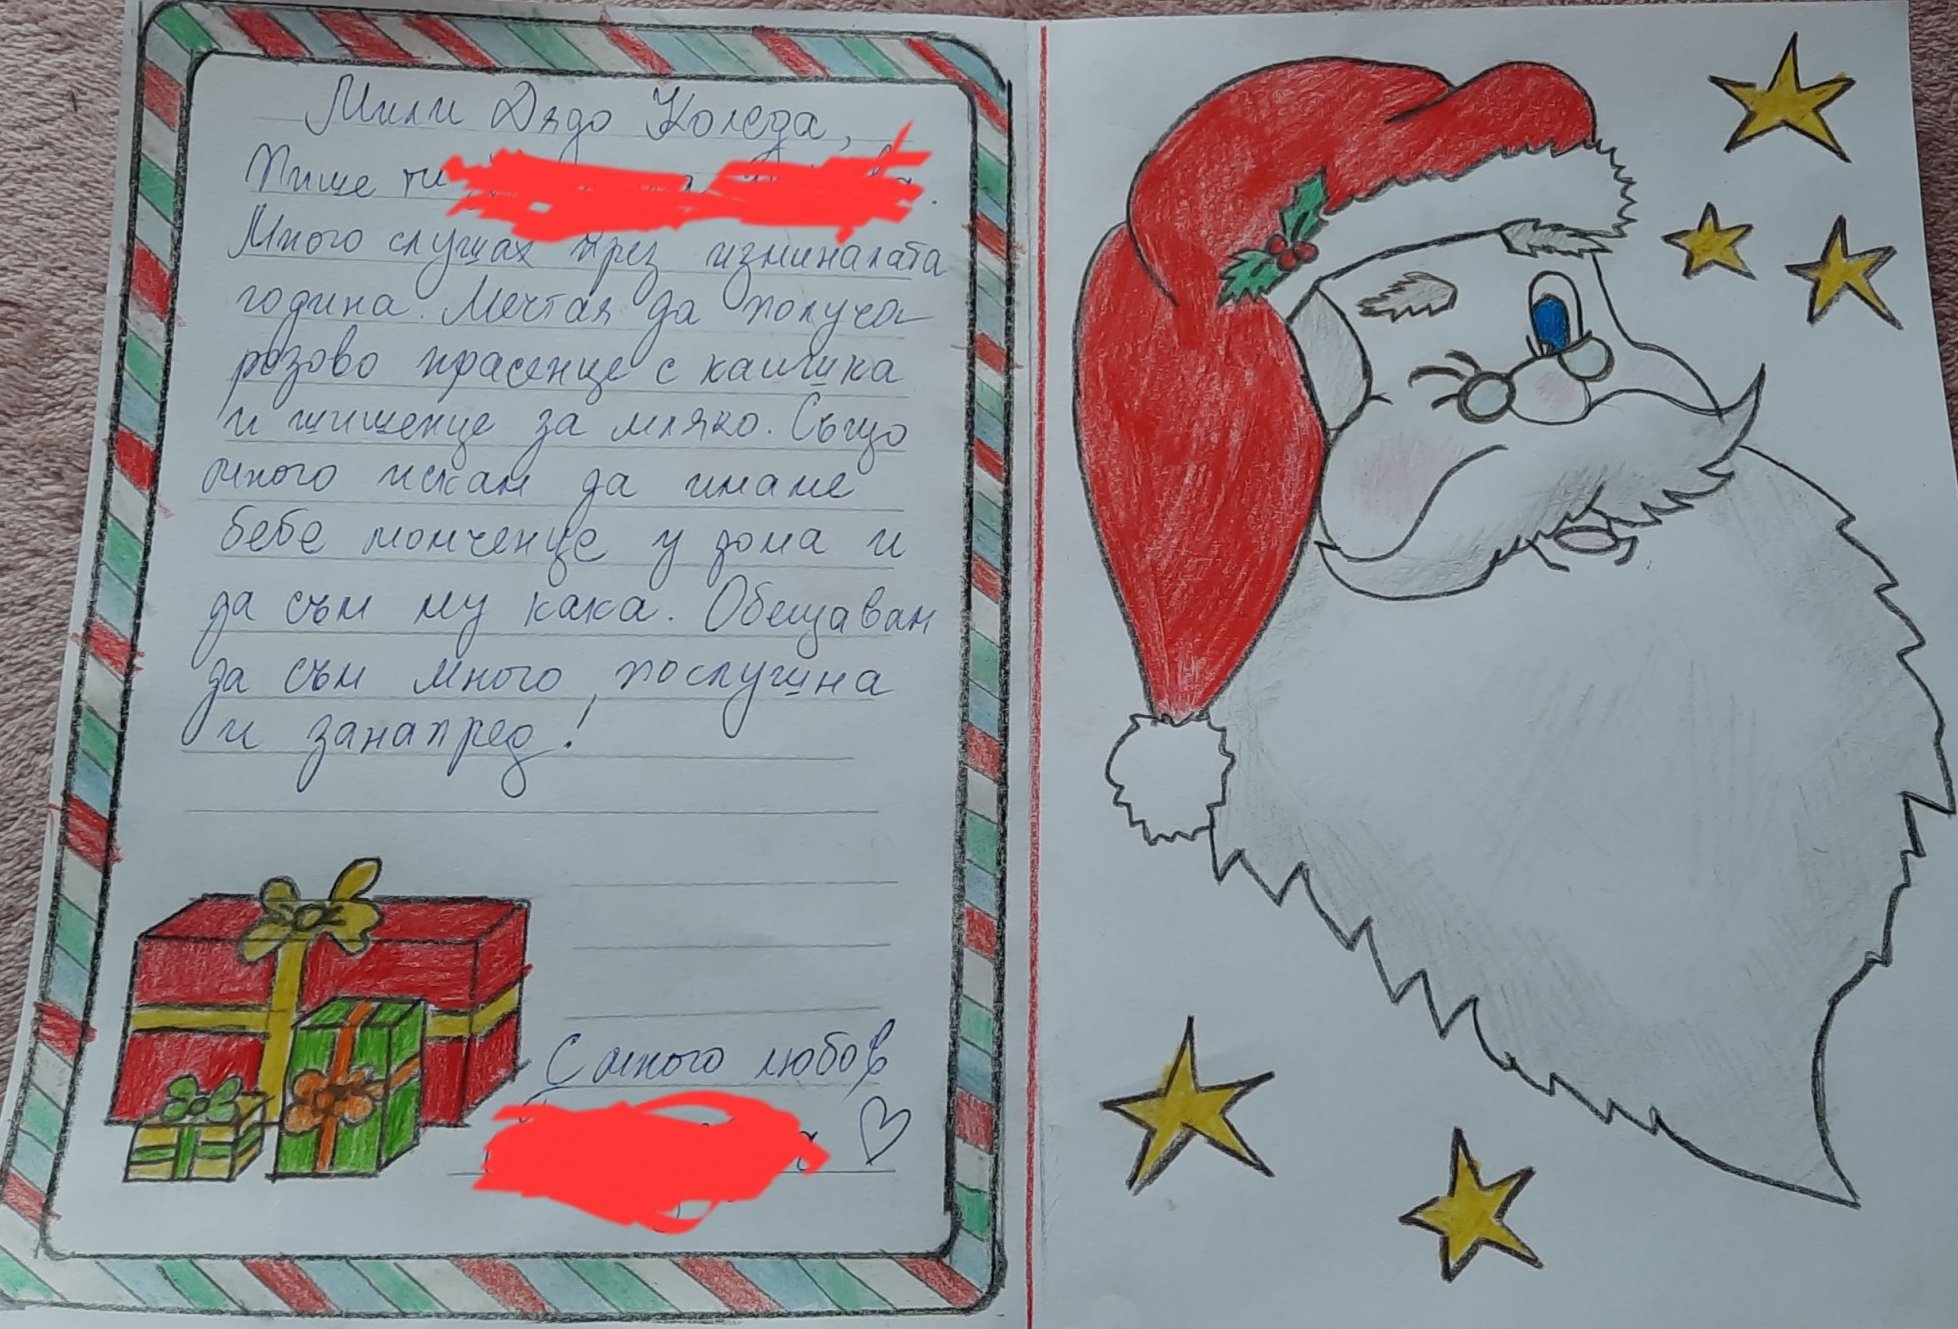 Мили Дядо Коледа,
Пише ти
Много слушах през изминалата
година. Мечтая да получа
розово прасенце с каишка
и шишенце за мляко. Също
много искам да имаме
бебе момченце у дома и
да съм му кака. Обещавам
да съм много послушна
и занапред!
С много любов